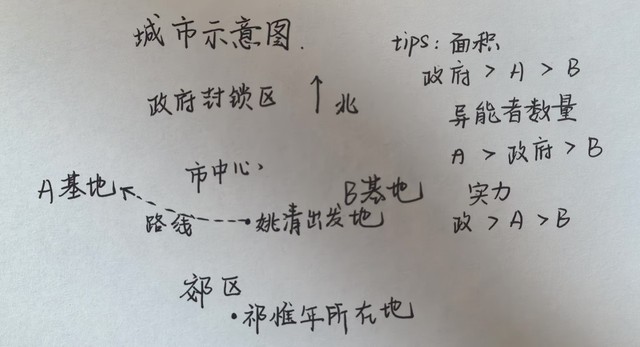 城市示意图.
tips: 面积
政府 > A > B
异能者数量
A > 政府 > B
实力
政 > A > B
政府封锁区
北
市中心
A基地
B基地
路线
姚清出发地
郊区
祁惟年所在地